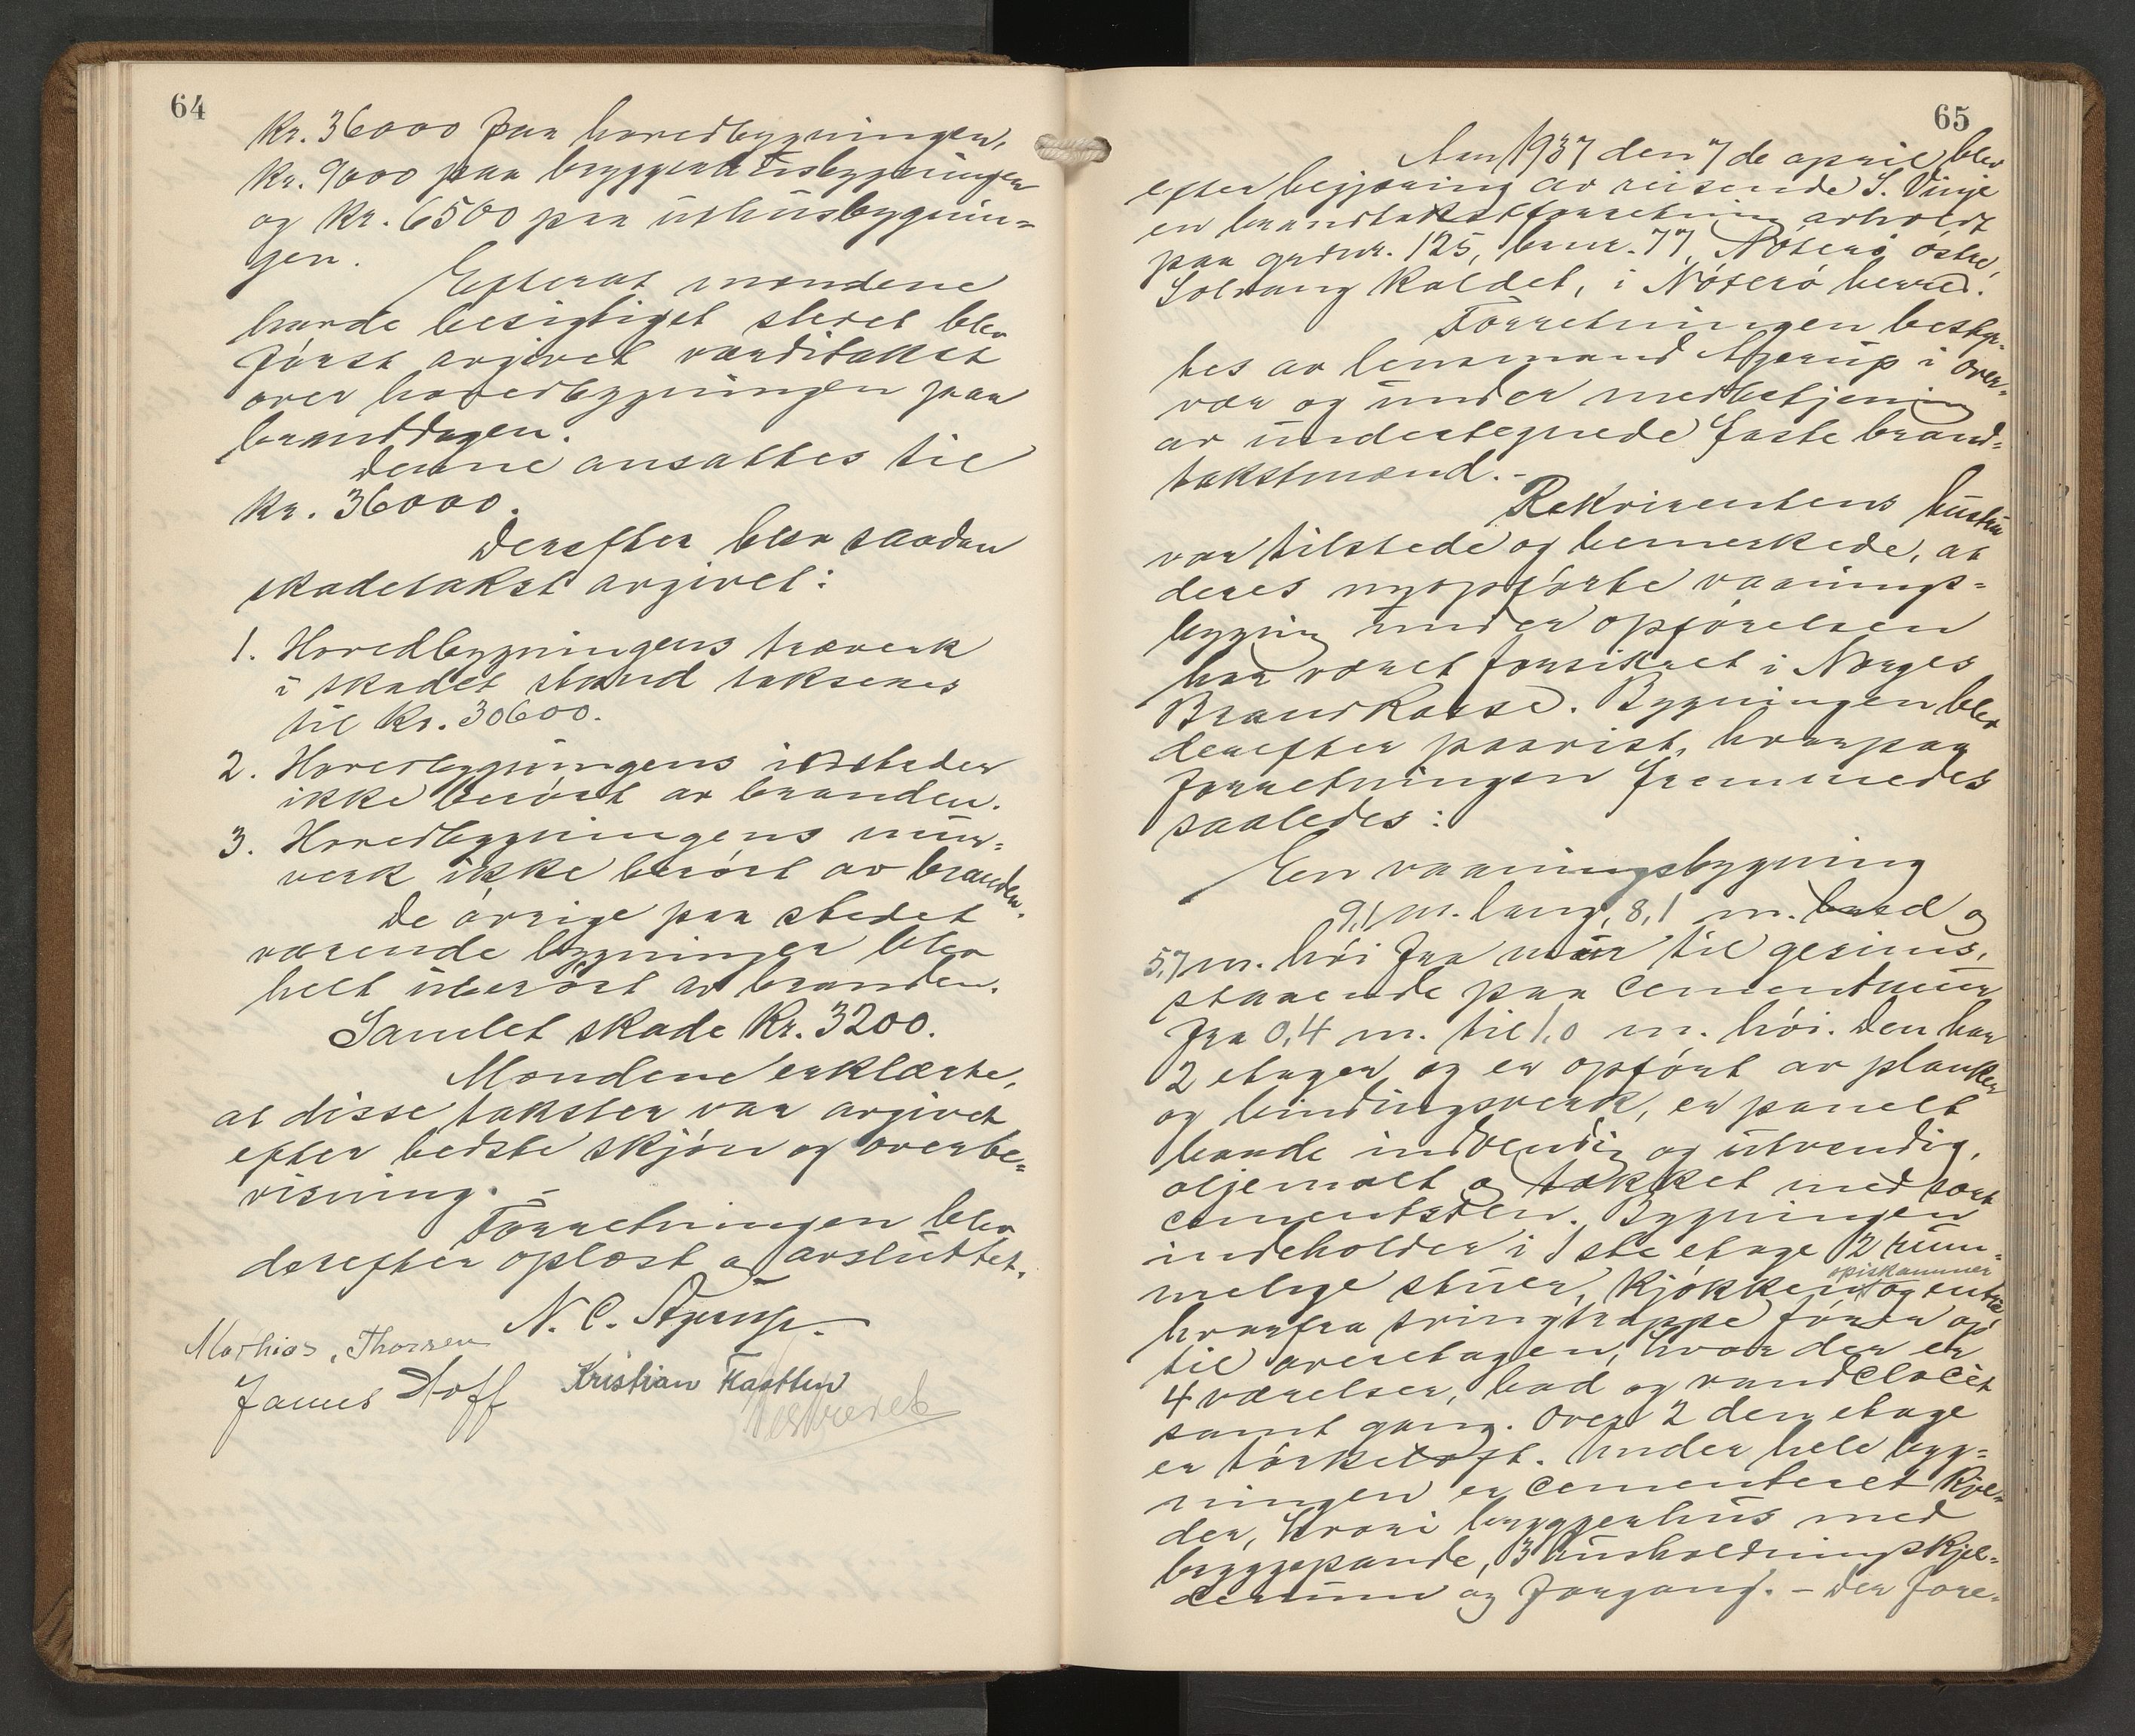 64
Kr. 36000 paa hovedbygningen,
Kr. 9000 paa bryggerhusbygningen
og Kr. 6500 paa uthusbygnin-
gen.
Efterat mændene
havde besigtiget stedet blev
först avgivet værditakst
over hovedbygningen paa
branddagen.
Denne ansattes til
Kr. 36000.
Derefter blev saadan
skadetakst avgivet:
1. Hovedbygningens træverk
i skadet stand takseres
til Kr. 30600.
2. Hovedbygningens ildsteder
ikke berört av branden.
3. Hovedbygningens mur-
verk ikke berört av branden.
De övrige paa stedet
værende bygninger blev
helt uberört av branden.
Samlet skade Kr. 3200.
Mændene erklærte,
at disse takster var avgivet
efter bedste skjön og overbe-
visning. -
Forretningen blev
derefter oplæst og avsluttet.
N. C. Agerup.
Mathias, Thorsen
James Hoff Kristian Kastten
Beskrevet
65
Aar 1937 den 7de april blev
efter begjæring av reisende S. Vinje
en brandtakstforretning avholdt
paa gardnr. 125, brnr. 77, Nöterö östre,
Solvang kaldet, i Nöterö herred.
Forretningen besty-
tes av lensmand Agerup i over-
vær og under medbetjening
av undertegnede faste brand-
takstmænd. -
Rekvirentens hustru
var tilstede og bemerkede, at
deres nyopförte vaanings-
bygning under opförelsen
har været forsikret i Norges
Brandkasse. Bygningen blev
derefter paavist, hvorpaa
forretningen fremmedes
saaledes:
En vaaningsbygning
9,1 m. lang, 8,1 m. bred og
5,7 m. höi fra mur til gesims,
staaende paa cementmur
fra 0,4 m. til 1,0 m. höi. Den har
2 etager og er opfört av planker
og bindingsverk, er panelt
baade indvendig og utvendig,
oljemalt og tækket med sort
cementsten. Bygningen
indeholder i 1ste etage 2 rum-
melige stuer, kjökken, spiskammer og entre
hvorfra svingtrappe förer op
til overetagen, hvor der er
4 værelser, bad og vandclocet
samt gang. Over 2den etage
er törkeloft. Under hele byg-
ningen er cementeret kjel-
der, hvori bryggerhus med
bryggepande, 3 husholdningskjel-
derrum og forgang. - Der fore-